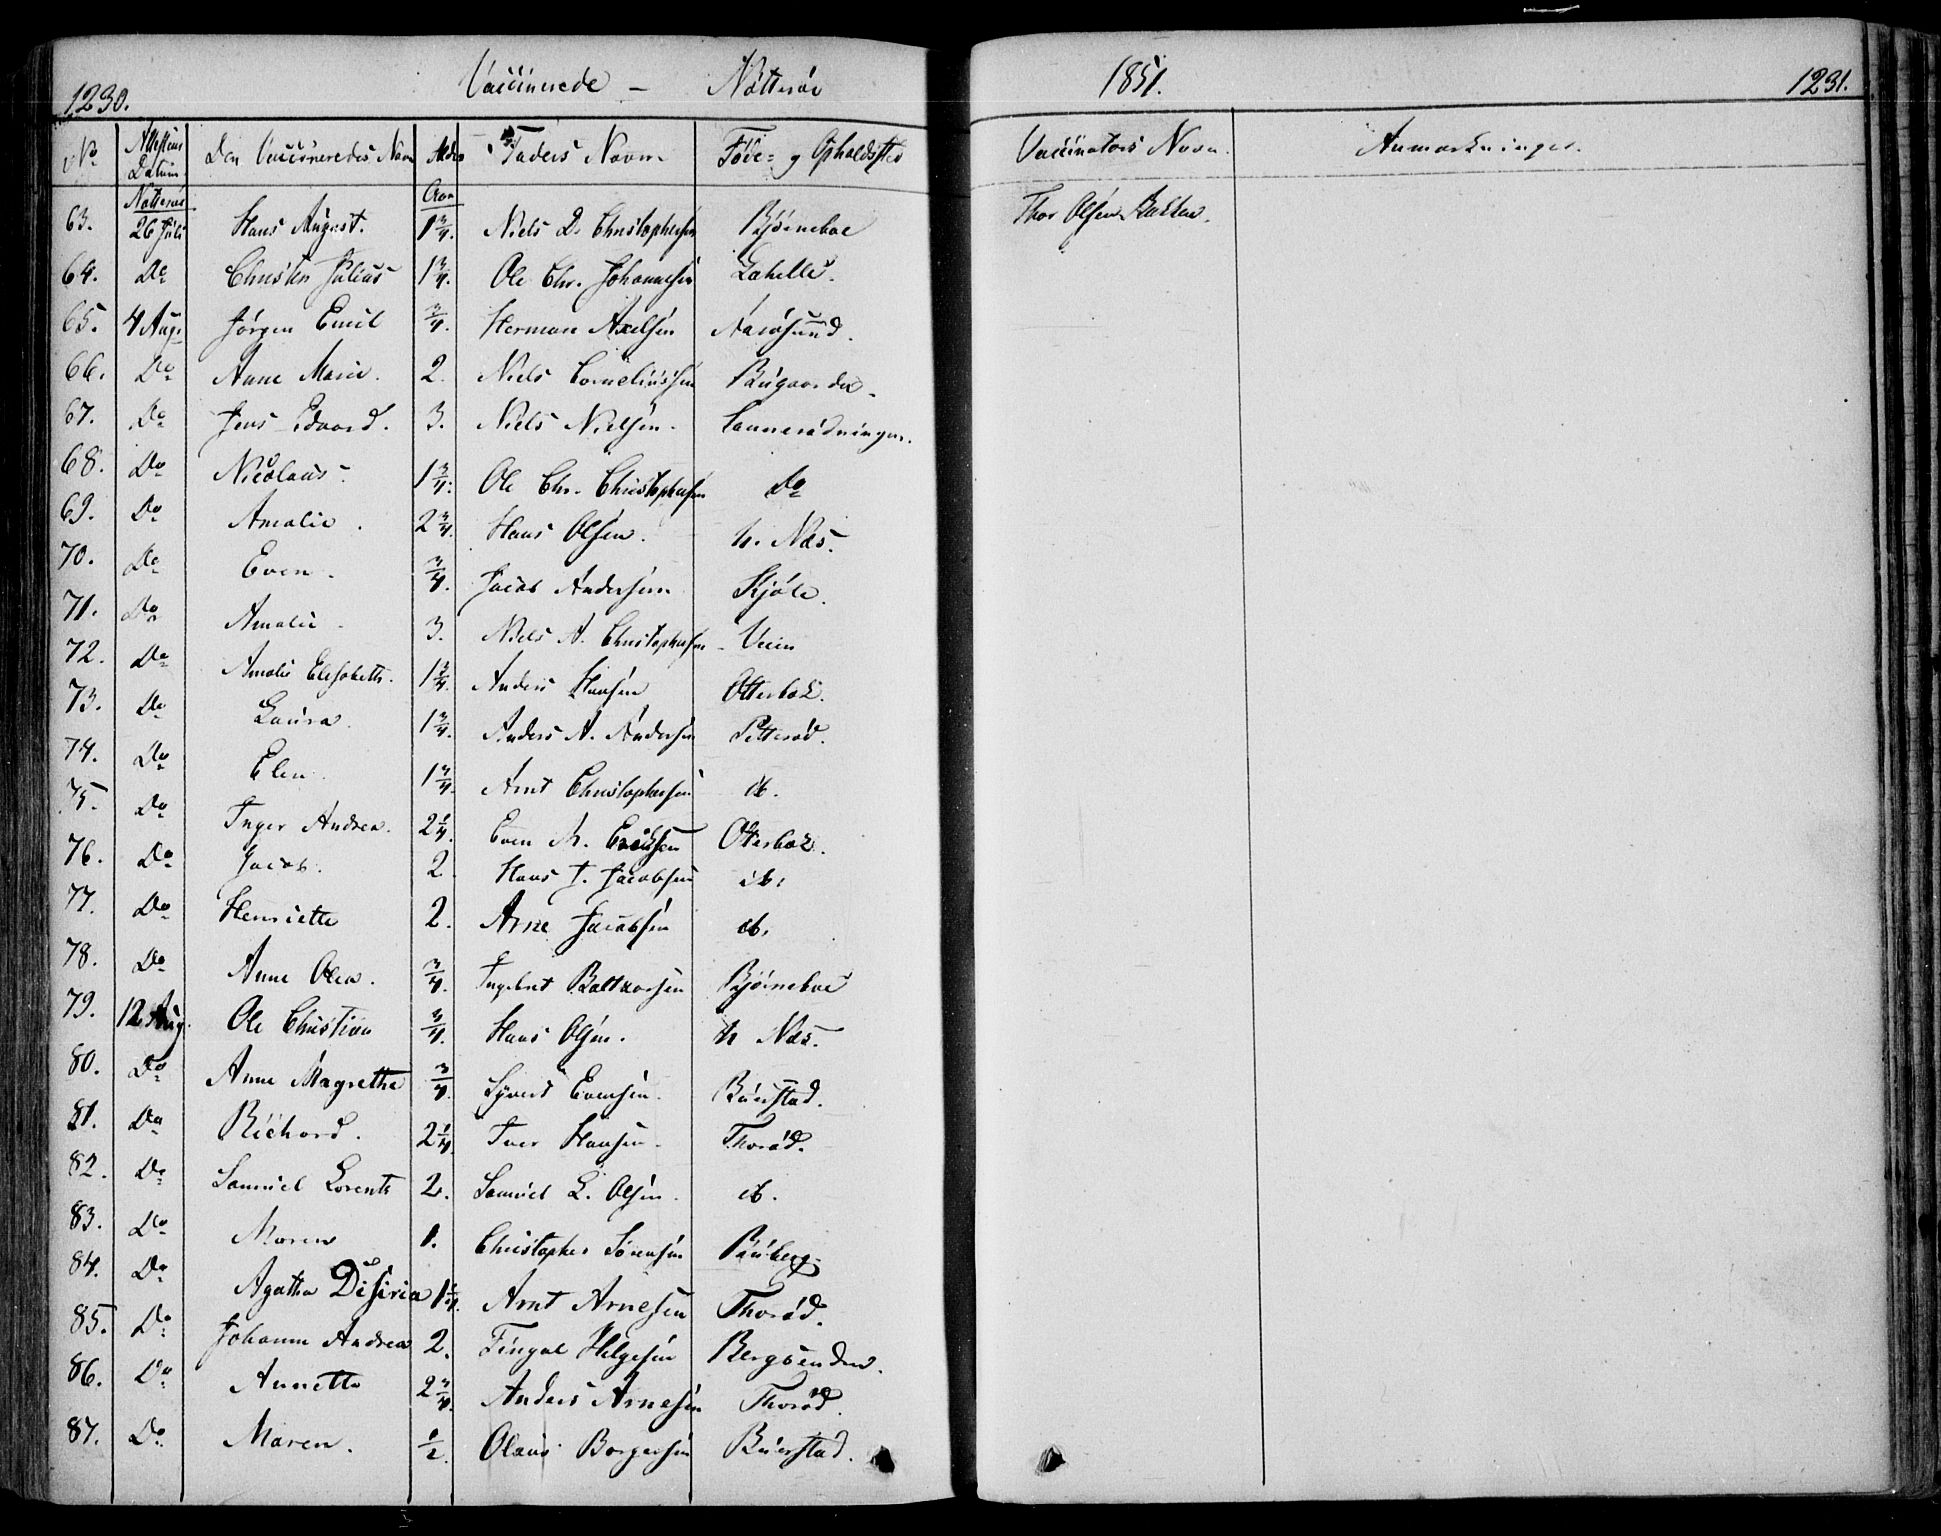 1230. Vaccinerede – Nøtterøe 1851. 1231.
No Attestens Datum. Den Vaccineredes Navn Alder Faders Navn Føde- og Opholdssted Vaccinators Navn. Anmærkninger.
Nøtterøe Aar
63. 26 Juli Hans August. 1 3/4. Niels D. Christophersen Bjørneboe Thor Olsen Bakken.
64. Do Christen Julius 1 3/4. Ole Chr. Johannesen
65. 4 Aug. Jørgen Emil 3/4. Herman Axelsen Narøsund.
66. Do Anne Marie. 2. Niels Corneliussen Bugaarden.
67. Do Jens Edvard. 3. Niels Nielsen.
68. Do Nicolaus. 1 3/4. Ole Chr. Christophersen Do
69. Do Amalie. 2 3/4. Hans Olsen. n. Næs.
70. Do Even. 3/4. Jacob Andersen Kjøle.
71. Do Amalie 3. Niels A. Christophersen Veien
72. Do Amalie Elisabeth. 1 3/4. Anders Hansen Otterbek.
73. Do Laura. 1 3/4. Anders A. Andersen Petterød.
74. Do Elen. 1 3/4. Arnt Christophersen ib.
75. Do Inger Andrea. 2 1/4. Even M. Eriksen Oterbek.
76. Do Jacob. 2 Hans J. Jacobsen ib.
77. Do Henriette 2. Arne Jacobsen ib.
78. Do Anne Olea. 3/4. Ingebret Baltzersen Bjørneboe
79. 12 Aug. Ole Christian 3/4. Hans Olsen. n Næs.
80. Do Anne Magrethe 3/4. Syvert Evensen. Buerstad.
81. Do Richard. 2 1/4. Iver Hansen. Thorød.
82. Do Samuel Lorents 2. Samuel L. Olsen. ib.
83. Do Maren 1. Christopher Sørensen
84. Do Agatha Disiria 1 1/4. Arnt Arnesen Thorød.
85. Do Johanne Andrea 2. Fingal Helgesen
86. Do Annette 2 3/4. Anders Arnesen Thorød.
87. Do Maren. 1/2. Olaus Borgersen Buerstad.